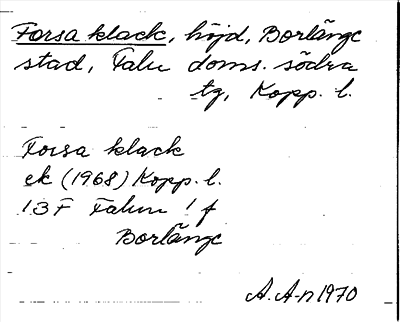 Forsa klack, höjd, Borlänge
stad, Falu doms. södra
tg, Kopp. l.
Forsa klack
ek (1968) Kopp. l.
13F Falun 1 f
Borlänge
A. A-n 1970